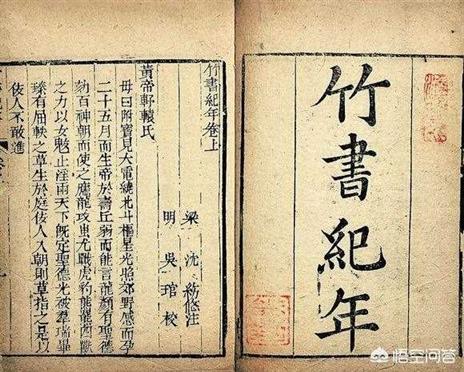 竹書紀年
竹書紀年卷上
梁 沈約修注
明 吳琯校
黃帝軒轅氏
母曰附寶見大電繞北斗樞星光照郊野感而孕
二十五月而生帝於壽丘弱而能言龍顏有聖德
劾百神朝而使之應龍攻蚩尤戰虎豹熊羆四獸
之力以女魃止淫雨天下既定聖德光被羣瑞畢
臻有屈軼之草生於庭佞人入朝則草指之是以
佞人不敢進
悟空问答